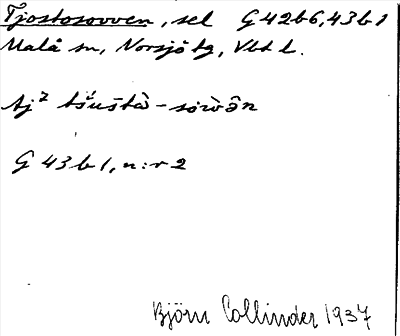 Tjostosovven, sel G42b6,43b1
Malå sn, Norsjö tg, Vbtl.
Aj² tšuštà-sørẁên
G 43 b 1, n:r 2
Björn Collinder 1937